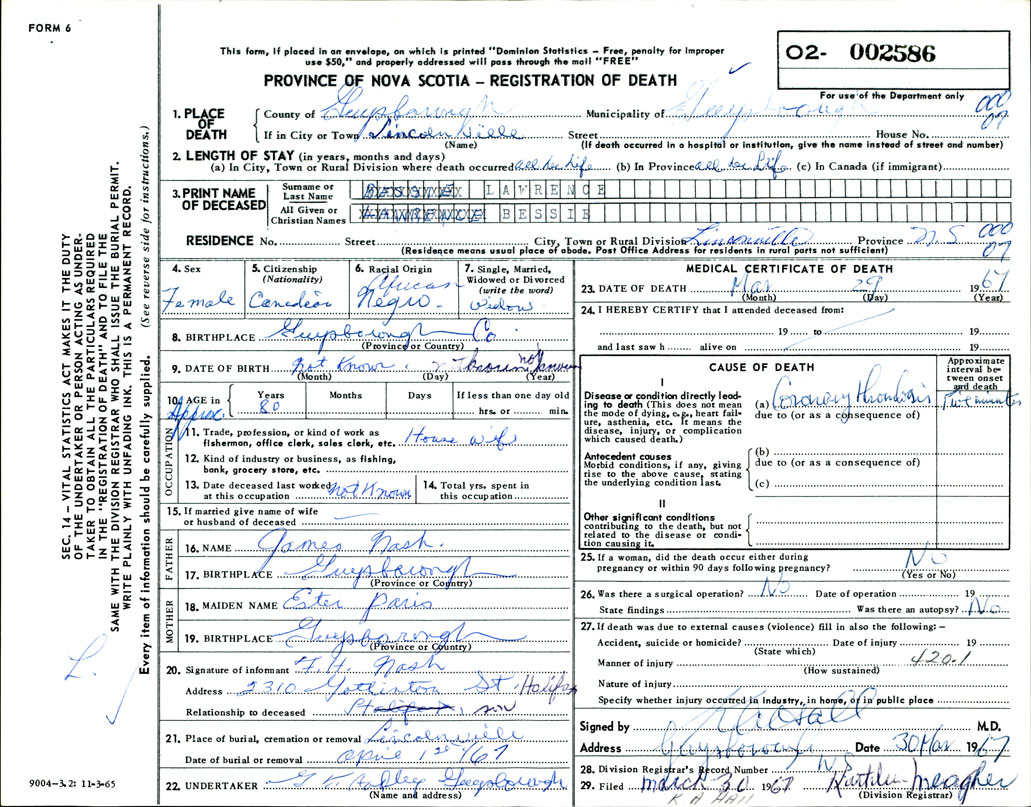 FORM 6
This form, if placed in an envelope, on which is printed "Dominion Statistics – Free, penalty for improper
use $50," and properly addressed will pass through the mail "FREE"
O2- 002586
PROVINCE OF NOVA SCOTIA – REGISTRATION OF DEATH
For use of the Department only
000
07
1. PLACE OF DEATH
County of Guysborough Municipality of Guysborough
If in City or Town Lincolnville Street House No.
(Name) (If death occurred in a hospital or institution, give the name instead of street and number)
2. LENGTH OF STAY (in years, months and days)
(a) In City, Town or Rural Division where death occurred all her life (b) In Province all her life (c) In Canada (if immigrant)
3. PRINT NAME OF DECEASED
Surname or Last Name BESSIE LAWRENCE
All Given or Christian Names LAWRENCE BESSIE
RESIDENCE No. Street City, Town or Rural Division Linconville Province N.S
000
07
(Residence means usual place of abode. Post Office Address for residents in rural parts not sufficient)
4. Sex
Female
5. Citizenship
(Nationality)
Canadian
6. Racial Origin
African
Negro
7. Single, Married,
Widowed or Divorced
(write the word)
Widow
8. BIRTHPLACE Guysborough Co
(Province or Country)
9. DATE OF BIRTH not Known not known
(Month) (Day) (Year)
10. AGE in Approx
Years Months Days If less than one day old
80 hrs. or min.
OCCUPATION
11. Trade, profession, or kind of work as
fisherman, office clerk, sales clerk, etc. House wif
12. Kind of industry or business, as fishing,
bank, grocery store, etc.
13. Date deceased last worked
at this occupation not Known
14. Total yrs. spent in
this occupation
15. If married give name of wife
or husband of deceased
FATHER
16. NAME James Nash.
17. BIRTHPLACE Guysborough
(Province or Country)
MOTHER
18. MAIDEN NAME Ester Paris
19. BIRTHPLACE Guysborough
(Province or Country)
20. Signature of informant F. H. Nash
Address 2310 St. Halifax
Relationship to deceased Halifax, son
21. Place of burial, cremation or removal Lincolnville
Date of burial or removal April 1st /67
22. UNDERTAKER Guysborough
(Name and address)
MEDICAL CERTIFICATE OF DEATH
23. DATE OF DEATH Mar 29 1967
(Month) (Day) (Year)
24. I HEREBY CERTIFY that I attended deceased from:
19 to 19
and last saw h alive on 19
CAUSE OF DEATH
Approximate
interval be-
tween onset
and death
I
Disease or condition directly lead-
ing to death (This does not mean
the mode of dying, e.g., heart fail-
ure, asthenia, etc. It means the
disease, injury, or complication
which caused death.)
(a) Coronary Thrombosis Five minutes
due to (or as a consequence of)
Antecedent causes
Morbid conditions, if any, giving
rise to the above cause, stating
the underlying condition last.
(b)
due to (or as a consequence of)
(c)
II
Other significant conditions
contributing to the death, but not
related to the disease or condi-
tion causing it.
25. If a woman, did the death occur either during
pregnancy or within 90 days following pregnancy? No
(Yes or No)
26. Was there a surgical operation? No Date of operation 19
State findings Was there an autopsy? No
27. If death was due to external causes (violence) fill in also the following: –
Accident, suicide or homicide? Date of injury 19
(State which)
Manner of injury 420.1
(How sustained)
Nature of injury
Specify whether injury occurred in industry, in home, or in public place
Signed by K A Hall M.D.
Address Guysborough Date 30 Mar 1967
N S
28. Division Registrar's Record Number
29. Filed March 30 1967 Meagher
K A HAll (Division Registrar)
SEC. 14 – VITAL STATISTICS ACT MAKES IT THE DUTY
OF THE UNDERTAKER OR PERSON ACTING AS UNDER-
TAKER TO OBTAIN ALL THE PARTICULARS REQUIRED
IN THE "REGISTRATION OF DEATH" AND TO FILE THE
SAME WITH THE DIVISION REGISTRAR WHO SHALL ISSUE THE BURIAL PERMIT.
WRITE PLAINLY WITH UNFADING INK. THIS IS A PERMANENT RECORD.
Every item of information should be carefully supplied. (See reverse side for instructions.)
L.
9004–3.2: 11-3-65